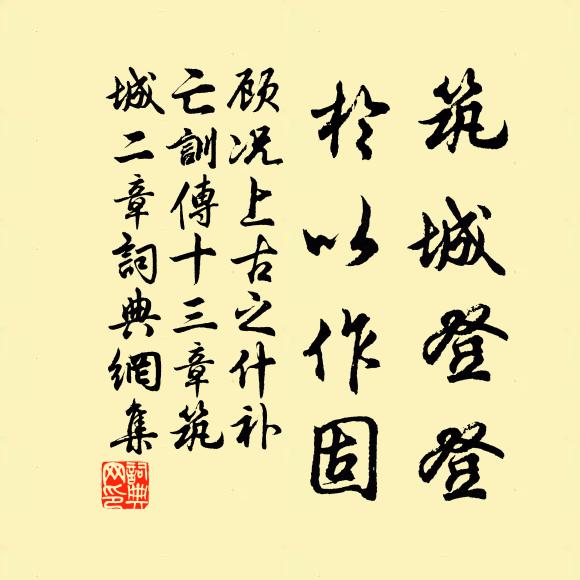 筑城登登
於以作固
顾况上古之什补
亡訓傳十三章筑
城二章詞典網集
詞典
网印